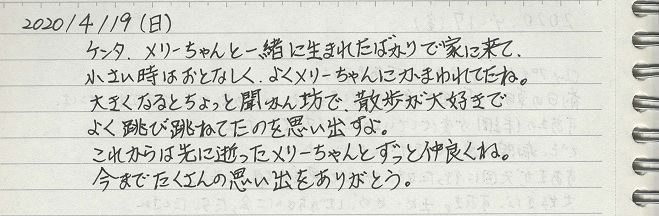 2020/4/19(日)
ケンタ、メリーちゃんと一緒に生まれたばかりで家に来て、
小さい時はおとなしく、よくメリーちゃんにかまわれてたね。
大きくなるとちょっと聞かん坊で、散歩が大好きで
よく跳び跳ねてたのを思い出すよ。
これからは先に逝ったメリーちゃんとずっと仲良くね。
今までたくさんの思い出をありがとう。